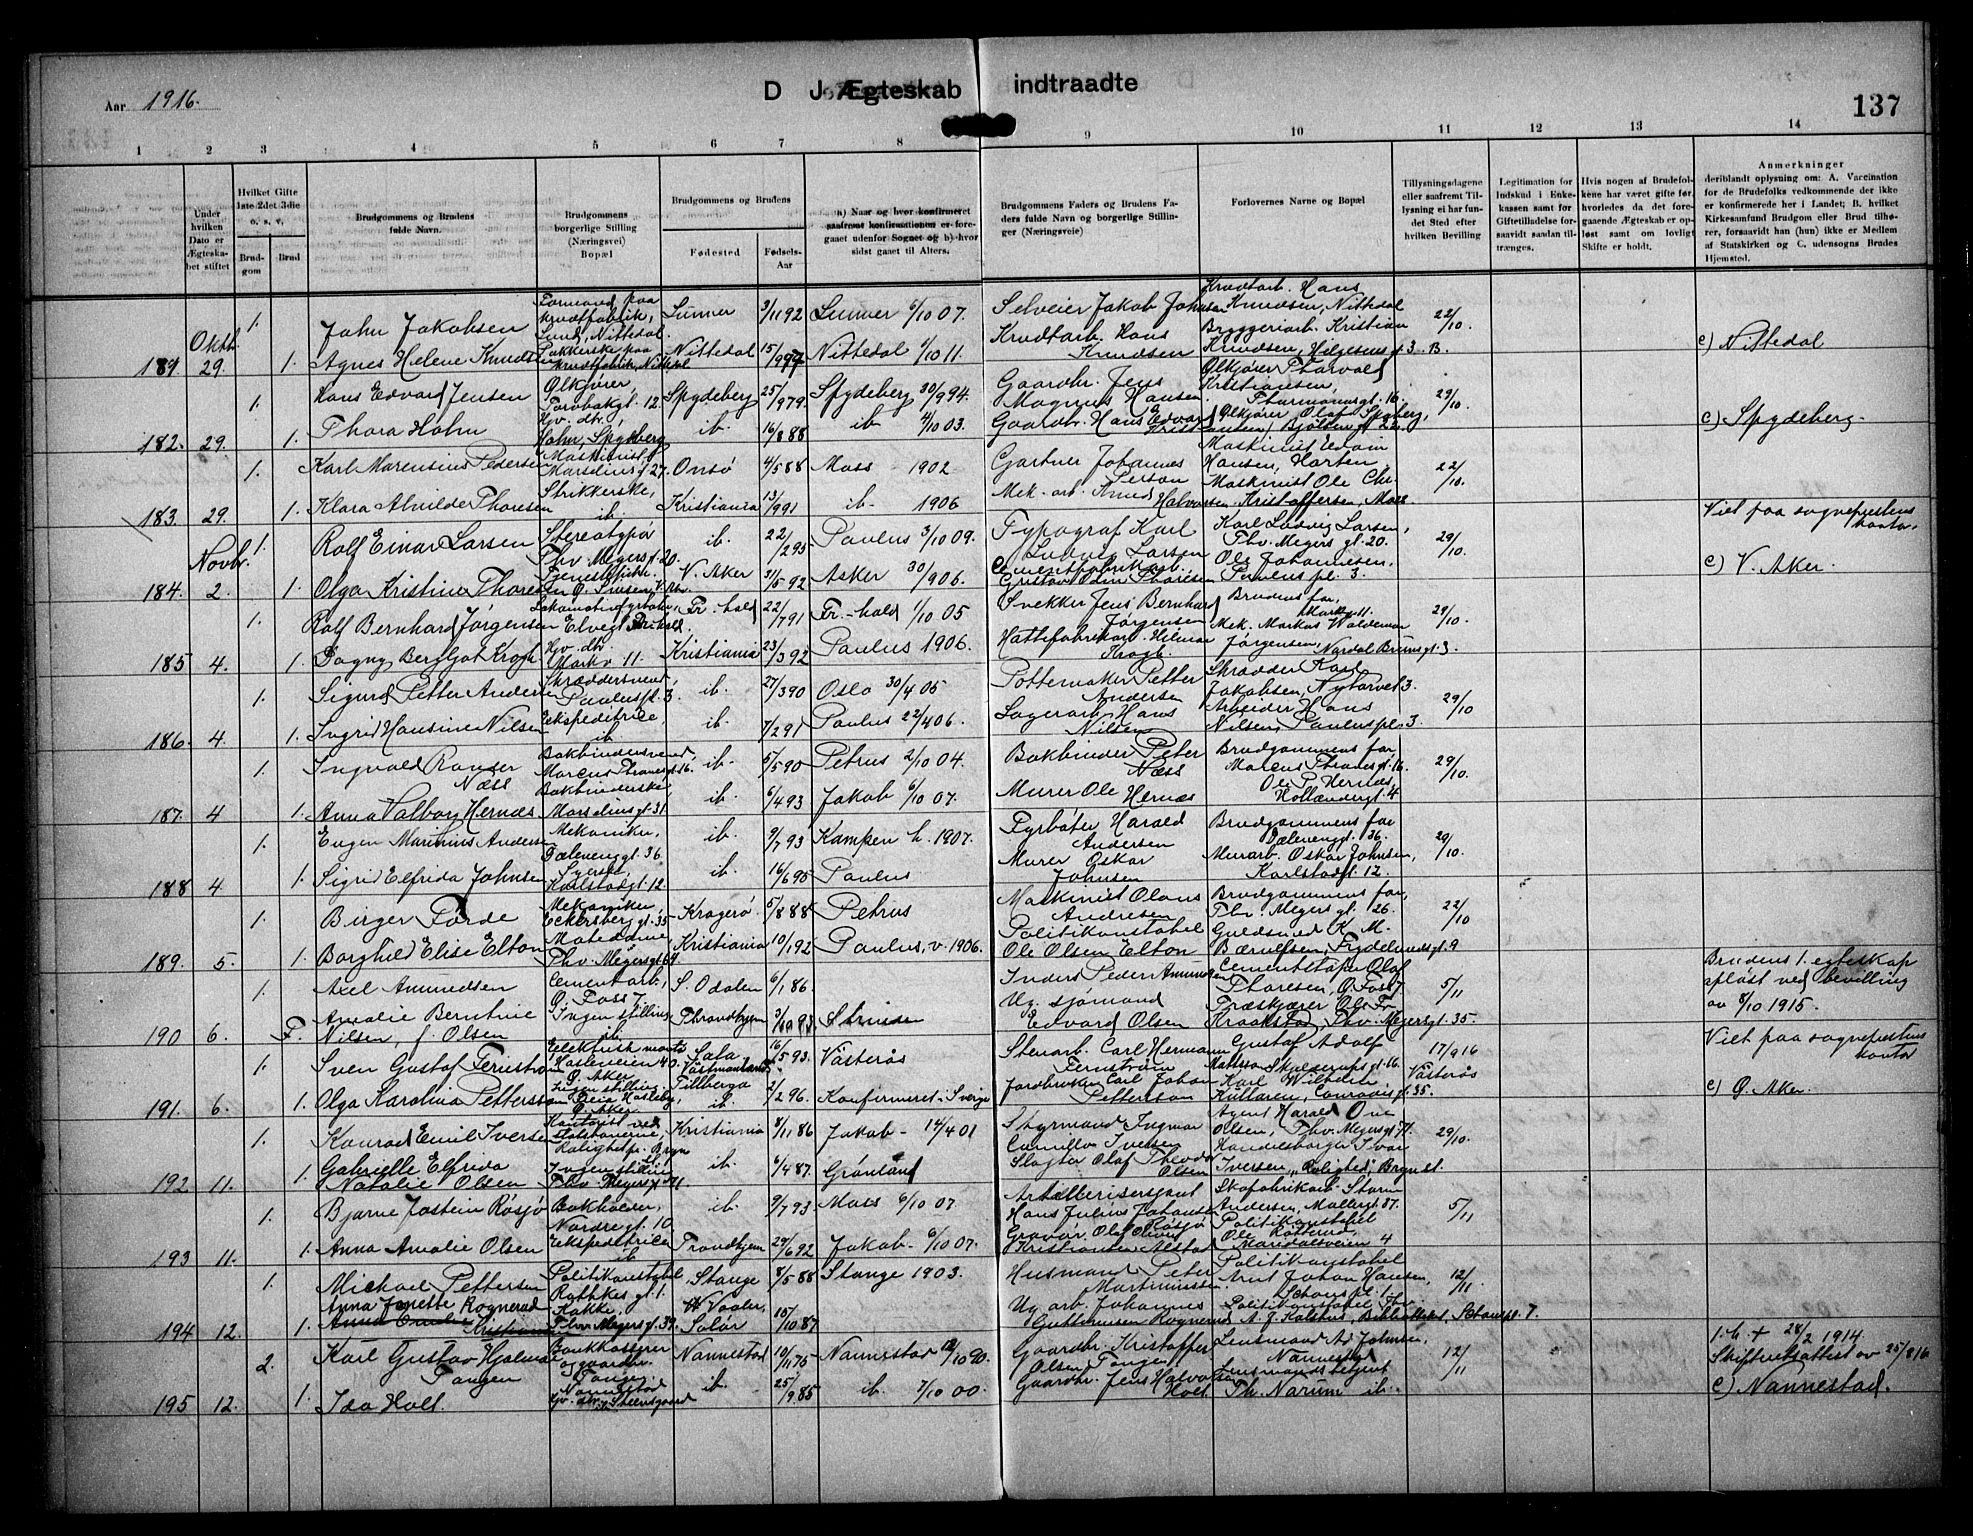 Aar 1916.
D J Ægteskab indtraadte
137
1 2 3 4 5 6 7 8 9 10 11 12 13 14
Under hvilken Dato er Ægteskabet stiftet
Hvilket Gifte 1ste 2det 3die o. s. v.
Brudgom
Brud
Brudgommens og Brudens fulde Navn.
Brudgommens borgerlige Stilling (Næringsvei) Bopæl
Brudgommens og Brudens
Fødested
Fødsels-Aar
a) Naar og hvor konfirmeret saafremt konfirmationen er foregaaet udenfor Sognet og b) hvor sidst gaaet til Alters.
Brudgommens Faders og Brudens Faders fulde Navn og borgerlige Stillinger (Næringsveie)
Forlovernes Navne og Bopæl
Tillysningsdagene eller saafremt Tillysning ei har fundet Sted efter hvilken Bevilling
Legitimation for Indskud i Enkekassen samt for Giftetilladelse forsaavidt saadan tiltrænges.
Hvis nogen af Brudefolkene har været gifte før, hvorledes da det foregaaende Ægteskab er opløst samt om lovligt Skifte er holdt.
Anmerkninger
deriblandt oplysning om: A. Vaccination for de Brudefolks vedkommende der ikke er konfirmerede her i Landet; B. hvilket Kirkesamfund Brudgom eller Brud tilhører, forsaavidt han (hun) ikke er Medlem af Statskirken og C. udensogns Brudes Hjemsted.
1. John Jakobsen Formand paa krudtfabrik, Lund, Nittedal Lunner 3/11 92 Lunner 6/10 07. Selveier Jakob Johnsen Krudtarb. Hans Knudsen, Nittedal 22/10.
181 Oktb. 29. 1. Agnes Helene Knudsen krudtfabrik, Nittedal Nittedal 15/9 Nittedal 1/10 11. Krudtarb. Hans Knudsen Bryggeriarb. Kristian Knudsen, 3. B. c) Nittedal
1. Hans Edvard Jensen Ølkjører, Torvbakgt. 12. Spydeberg 25/9 79. Spydeberg 30/9 94. Gaardbr. Jens Magnus Hansen Ølkjører Thorvald Kristiansen, Thurmannsgt. 16. 29/10.
182. 29. 1. Thora Holm Gjv. dtr., Holm, Spydeberg ib. 16/8 88 ib 4/10 03. Gaardbr. Hans Edvard Kristiansen Ølkjører Olaf Spyberg, c) Spydeberg.
1. Karl Marensius Pedersen Maskinist, Marselius g. 27. Onsø 4/5 88 Moss 1902 Gartner Johannes Person Maskinist Edvin Hansen, Horten 22/10.
183. 29. 1. Klara Alvilde Thoresen Strikkerske, ib. Kristiania 13/9 91 ib- 1906 Mek. arb. Knud Halvorsen Maskinist Ole Chr. Kristoffersen, Moss Viet paa sogneprestens kontor.
1. Rolf Einar Larsen Stereotypør Thv. Meyers g. 20. ib. 22/2 95 Paulus 3/10 09. Typograf Karl Ludvig Larsen Karl Ludvig Larsen, Thv. Meyers gt. 20. 29/10.
184. Novbr. 2. 1. Olga Kristine Thoresen V. Aker 31/5 92 Asker 30/9 06. Cementfabrikarb. Gustav Odin Thoresen Ole Johannesen, Paulus pl. 3. c) V. Aker.
1. Rolf Bernhard Jørgensen Lokomotivfyrbøter, Fr.-hald 22/7 91 Fr.-hald 1/10 05 Svekker Jens Bernhard Jørgensen Brudens far, Markv. 11. 29/10.
185 4. 1. Dagny Bergljot Krogh Gjv. dtr. Markv 11. Kristiania 23/3 92 Paulus 1906. Hattefabrikarb. Hilmar Krogh. Mek. Markus Waldemar Jørgensen, Nordal Brunsgt. 3.
1. Sigurd Petter Andersen Skræddersvend, Paulus pl. 3. ib. 27/3 90 Oslo 30/4 05 Pottemaker Petter Andersen Skrædder Karl Jakobsen, Nytorvet 3. 29/10
186. 4. 1. Ingrid Hansine Nilsen Ekspeditrice, ib. ib. 7/2 91 Paulus 22/4 06. Lagerarb. Hans Nilsen Arbeider Hans Nilsen, Paulus pl. 3.
1. Ingvald Rander Næss Bokbindersvend, Marcus Thranesgt. 16. ib. 5/5 90 Petrus 2/10 04. Bokbinder Peter Næss Brudgommens far, Marcus Thranesgt. 16. 29/10.
187. 4 1. Anna Valborg Hernæs Bokbinderske, Marseliusgt. 31 ib. 6/4 93 Jakob 6/10 07. Murer Ole Hernæs Ole P. Hernæs, Hollændergt. 4
1. Eugen Marthins Andersen Mekaniker, Dælenenggt. 36 ib. 9/7 93 Kampen h. 1907. Fyrbøter Harald Andersen Brudgommens far Dælenenggt. 36. 29/10.
188 4 1. Sigrid Elfrida Johnsen Syerske, Karlstadgt. 12. ib. 16/6 95 Paulus Murer Oskar Johnsen Murarb. Oskar Johnsen, Karlstadgt. 12.
1. Birger Førde Mekaniker, Eckersberg gt. 35 Kragerø 5/8 88 Petrus Maskinist Olaus Andresen Brudgommens far, Thv. Meyers gt. 26. 22/10
189. 5. 1. Borghild Elise Elton Thv. Meyersgt. 64 Kristiania 10/1 92 Paulus, v. 1906. Politikonstabel Ole Olsen Elton Guldsmed K. M. Bærulfsen, Frydenlundsgt. 9
1. Axel Amundsen Cementarb., Ø. Foss 7 S. Odalen 6/1 86. Inders Peder Amundsen Cementstøper Olaf Thoresen, Ø. Foss 7 5/11 Brudens 1. egteskap opløst ved bevilling av 8/10 1915.
190 6. F. Amalie Berntine Nilsen, f. Olsen Ingen stilling ib. Throndhjem 3/10 93. Strinden Ug. sjømand Edvard Olsen Træskjærer Ole Fr. Kraakstad, Thv. Meyersgt. 35.
1. Sven Gustaf Fernstrøm Elektrisk montør Haslenveien 40. Ø. Aker Sala Västmanland 16/5 93. Västerås Stenarb. Carl Hermann Fernstrøm Gustaf Adolf Mattsson, 17/9 16 Västerås Viet paa sogneprestens kontor
191. 6. 1. Olga Karolina Pettersson Ingen stilling, Ø. Aker Tillberga ib. 2/2 96. Konfirmeret i Sverige Jordbruker Carl Johan Petterson Karl Wilhelm Kullaren, Conradisgt. 35. c) Ø. Aker.
1. Konrad Emil Iversen Kontorist ved statsbanerne, Rolighet pr. Bryn Kristiania 8/11 86 Jakob - 14/4 01 Styrmand Ingvar Camillo Iversen Agent Harald Ove Olsen, Thv. Meyersgt. 71. 29/10.
192 11. 1. Gabrielle Elfrida Natalie Olsen Ingen stilling Thv. Meyersgt. 71. ib. 6/4 87. Grønland Slagter Olaf Theodor Olsen Handelsborger Ivar Iversen, „Rolighed", Bryn st.
1. Bjarne Jostein Røsjø Bokholder, Nordregt. 10 ib. 9/7 93 Moss 6/10 07. Artillerisersjant Hans Julius Johansen Røsjø Skofabrikarb. Storm Andersen, Møllergt. 37. 5/11
193 11. 1. Anna Amalie Olsen Ekspeditrice ib Trondhjem 29/6 92 Jakob - 6/10 07. Gravør Olaf Oliver Kristiansen Alstad Politikonstabel Ole Røtterud, Maridalsveien 4
1. Michael Pettersen Politikonstabel, Rathkes gt. 1. Stange 8/5 88 Stange 1903. Husmand Peter Martinussen Politikonstabel Arnt Johan Hansen, Schouspl. 1. 12/11.
194 12. 1. Anna Jonette Rognerud Kokke, Thv. Meyersgt. 37. Vaaler, Solør 15/10 87 Ug. arb. Johannes Guttormsen Rognerud Politikonstabel A. G. Kolstad, Schouspl. 7.
2. Karl Gustav Hjalmar Tangen Bankkasserer og gaardbr. Tangen, Nannestad Nannestad 10/11 75 Nannestad 12/10 90. Gaardbr. Kristoffer Olsen Tangen Lensmand A. Johnsen, Nannestad 12/11 1. h. + 28/2 1914. Skifteretsattest av 25/8 16
195 12. 1. Ida Holt. Gjv. dtr. Steensgaard ib. 25/9 85 ib. 7/10 00. Gaardbr. Jens Halvorsen Holt Lensmandsbetjent Th. Narum ib. c) Nannestad.